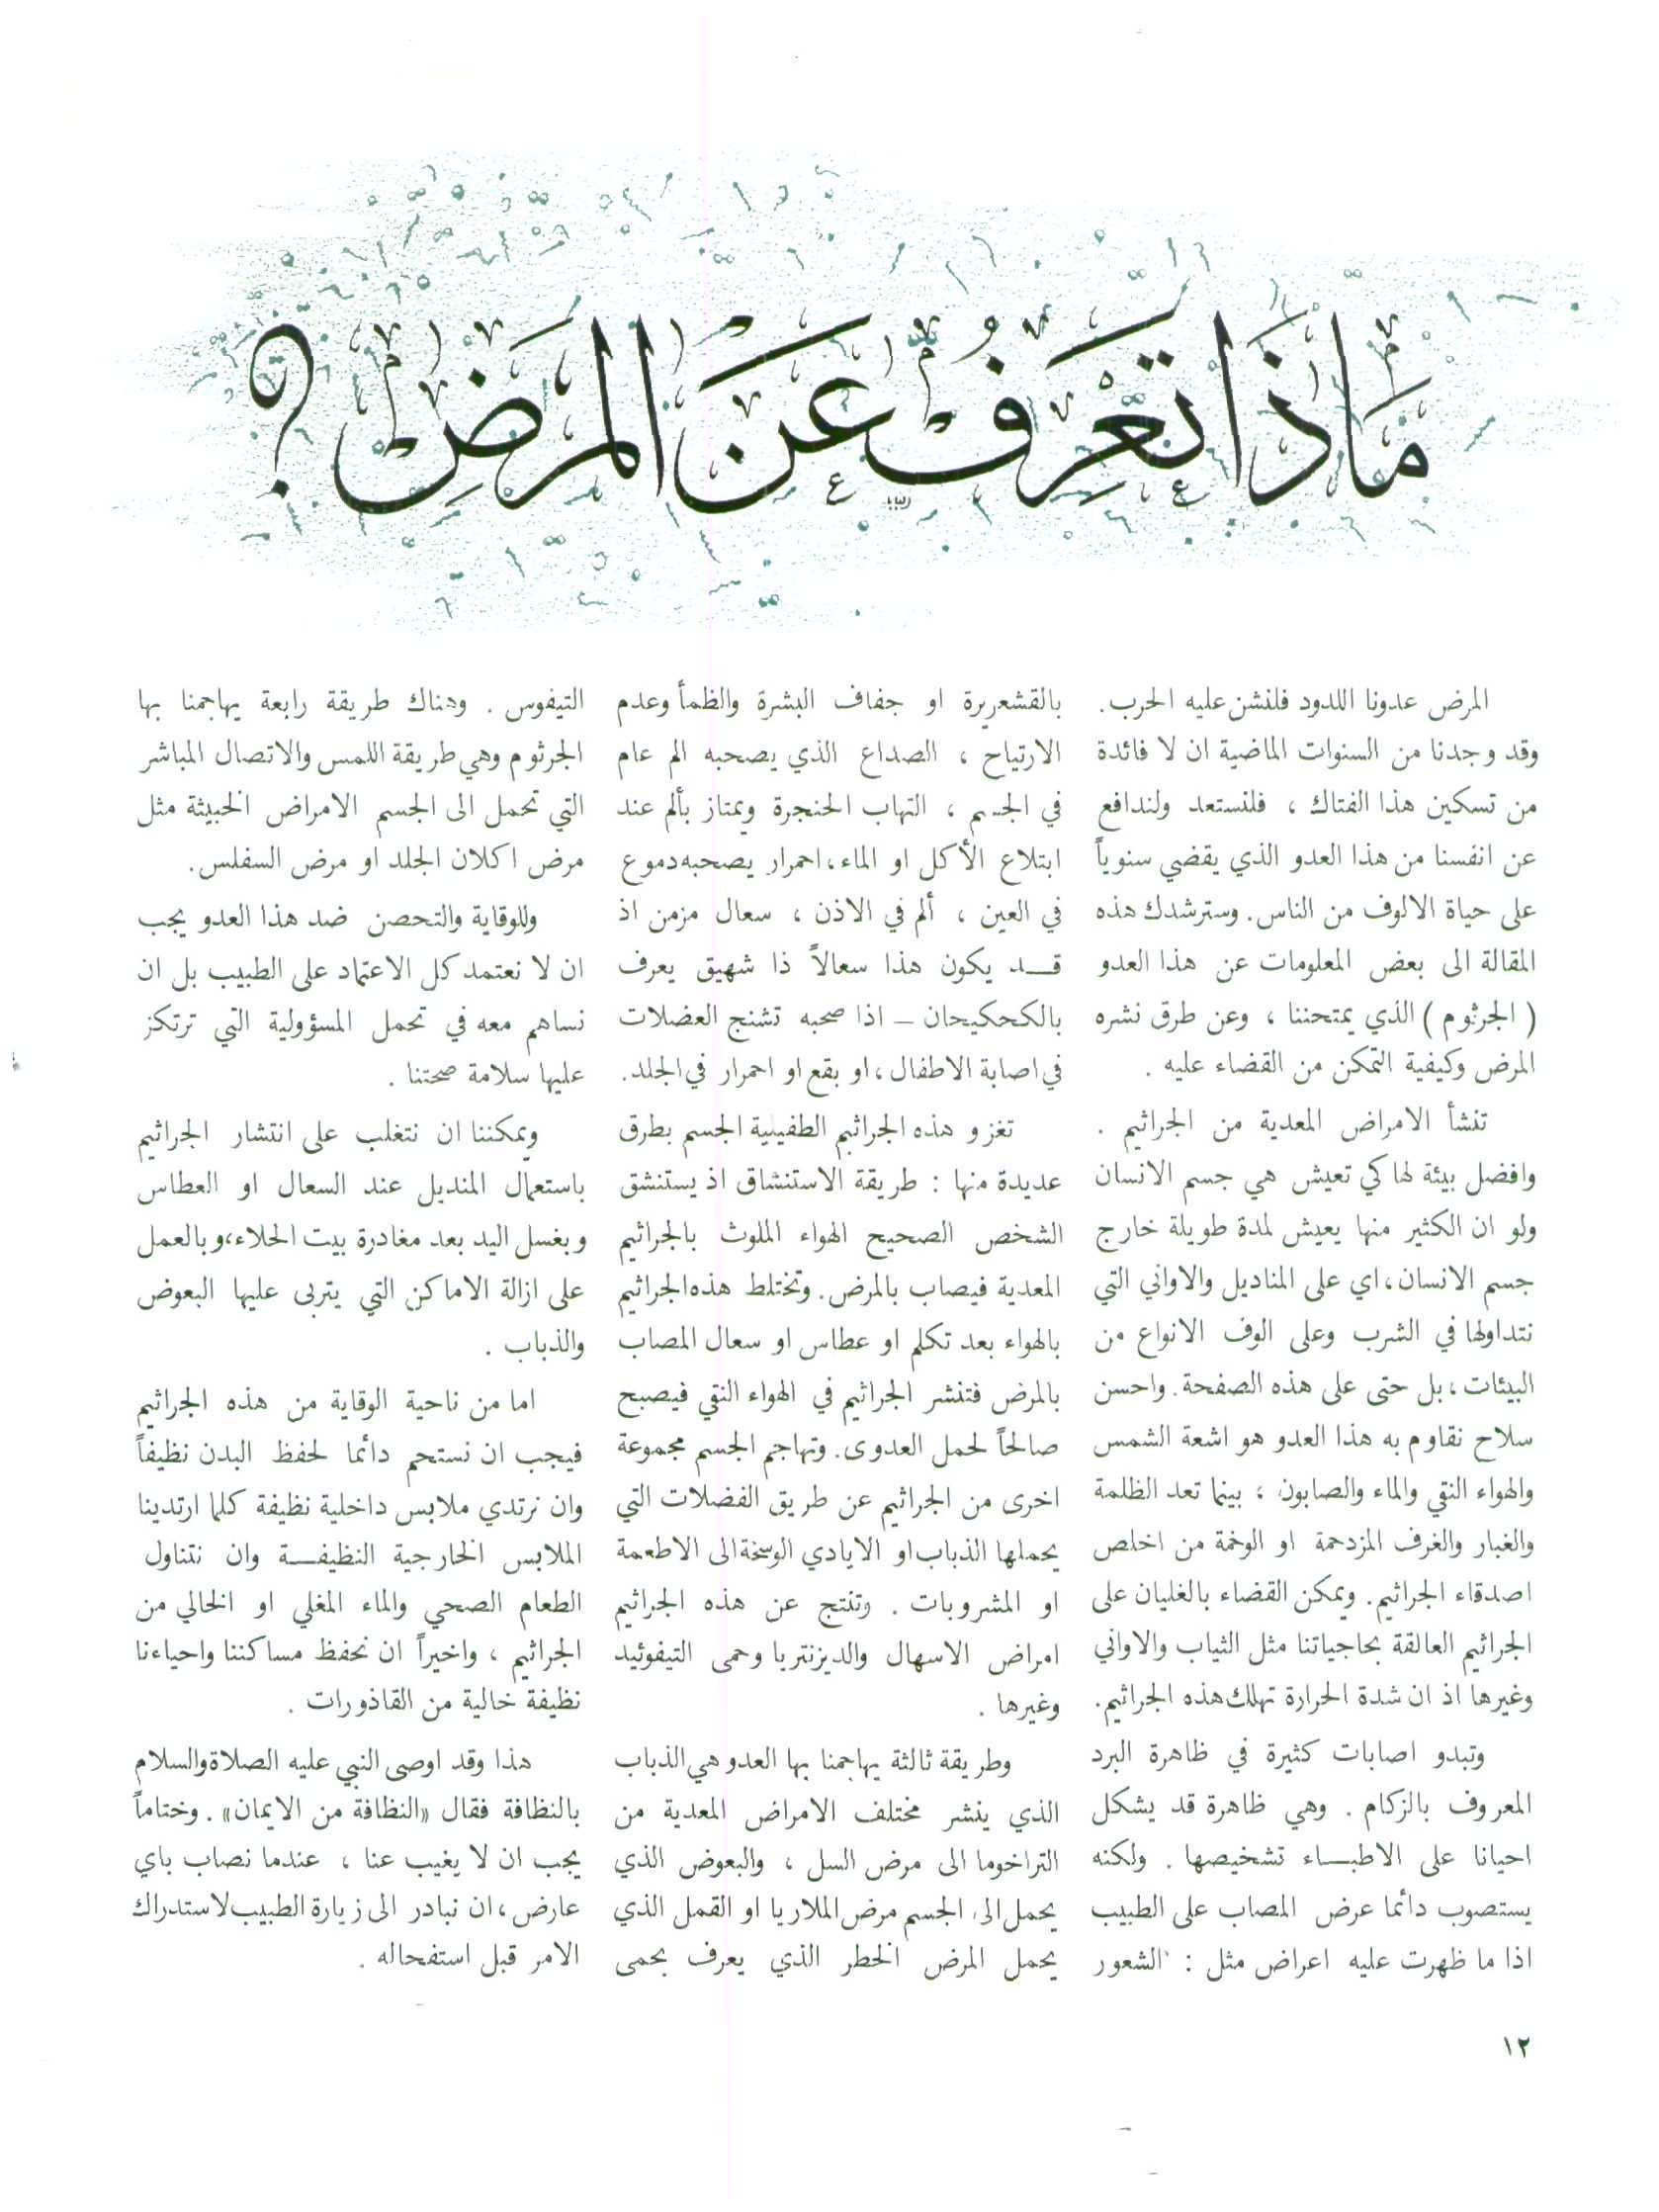 ماذا تعرف عن المرض؟
المرض عدونا اللدود فلنشن عليه الحرب.
وقد وجدنا من السنوات الماضية ان لا فائدة
من تسكين هذا الفتاك ، فلنستعد ولندافع
عن انفسنا من هذا العدو الذي يقضي سنوياً
على حياة الالوف من الناس. وسترشدك هذه
المقالة الى بعض المعلومات عن هذا العدو
( الجرثوم ) الذي يمتحننا ، وعن طرق نشره
المرض وكيفية التمكن من القضاء عليه .
تنشأ الامراض المعدية من الجراثيم .
وافضل بيئة لها كي تعيش هي جسم الانسان
ولو ان الكثير منها يعيش لمدة طويلة خارج
جسم الانسان، اي على المناديل والاواني التي
نتداولها في الشرب وعلى الوف الانواع من
البيئات ، بل حتى على هذه الصفحة. واحسن
سلاح نقاوم به هذا العدو هو اشعة الشمس
والهواء النقي والماء والصابون ؛ بينما تعد الظلمة
والغبار والغرف المزدحمة او الوخمة من اخلص
اصدقاء الجراثيم. ويمكن القضاء بالغليان على
الجراثيم العالقة بحاجياتنا مثل الثياب والاواني
وغيرها اذ ان شدة الحرارة تهلك هذه الجراثيم.
وتبدو اصابات كثيرة في ظاهرة البرد
المعروف بالزكام . وهي ظاهرة قد يشكل
احيانا على الاطبـاء تشخيصها . ولكنه
يستصوب دائما عرض المصاب على الطبيب
اذا ما ظهرت عليه اعراض مثل : الشعور
بالقشعريرة او جفاف البشرة والظمأ وعدم
الارتياح ، الصداع الذي يصحبه الم عام
في الجسم ، التهاب الحنجرة ويمتاز بألم عند
ابتلاع الأكل او الماء، احمرار يصحبه دموع
في العين ، ألم في الاذن ، سعال مزمن اذ
قـد يكون هذا سعالاً ذا شهيق يعرف
بالكحكيحان – اذا صحبه تشنج العضلات
في اصابة الاطفال ، او بقع او احمرار في الجلد.
تغزو هذه الجراثيم الطفيلية الجسم بطرق
عديدة منها : طريقة الاستنشاق اذ يستنشق
الشخص الصحيح الهواء الملوث بالجراثيم
المعدية فيصاب بالمرض. وتختلط هذه الجراثيم
بالهواء بعد تكلم او عطاس او سعال المصاب
بالمرض فتنشر الجراثيم في الهواء النقي فيصبح
صالحاً لحمل العدوى. وتهاجم الجسم مجموعة
اخرى من الجراثيم عن طريق الفضلات التي
يحملها الذباب او الايادي الوسخة الى الاطعمة
او المشروبات . وتنتج عن هذه الجراثيم
امراض الاسهال والديزنتريا وحمى التيفوئيد
وغيرها .
وطريقة ثالثة يهاجمنا بها العدو هي الذباب
الذي ينشر مختلف الامراض المعدية من
التراخوما الى مرض السل ، والبعوض الذي
يحمل الى الجسم مرض الملاريا او القمل الذي
يحمل المرض الخطر الذي يعرف بحمى
التيفوس . وهناك طريقة رابعة يهاجمنا بها
الجرثوم وهي طريقة اللمس والاتصال المباشر
التي تحمل الى الجسم الامراض الخبيثة مثل
مرض اكلان الجلد او مرض السفلس.
وللوقاية والتحصن ضد هذا العدو يجب
ان لا نعتمد كل الاعتماد على الطبيب بل ان
نساهم معه في تحمل المسؤولية التي ترتكز
عليها سلامة صحتنا .
ويمكننا ان نتغلب على انتشار الجراثيم
باستعمال المنديل عند السعال او العطاس
وبغسل اليد بعد مغادرة بيت الخلاء، وبالعمل
على ازالة الاماكن التي يتربى عليها البعوض
والذباب .
اما من ناحية الوقاية من هذه الجراثيم
فيجب ان نستحم دائما لحفظ البدن نظيفاً
وان نرتدي ملابس داخلية نظيفة كلما ارتدينا
الملابس الخارجية النظيفـة وان نتناول
الطعام الصحي والماء المغلي او الخالي من
الجراثيم ، واخيراً ان نحفظ مساكننا واحياءنا
نظيفة خالية من القاذورات .
هذا وقد اوصى النبي عليه الصلاة والسلام
بالنظافة فقال «النظافة من الايمان» . وختاماً
يجب ان لا يغيب عنا ، عندما نصاب باي
عارض ، ان نبادر الى زيارة الطبيب لاستدراك
الامر قبل استفحاله .
١٢